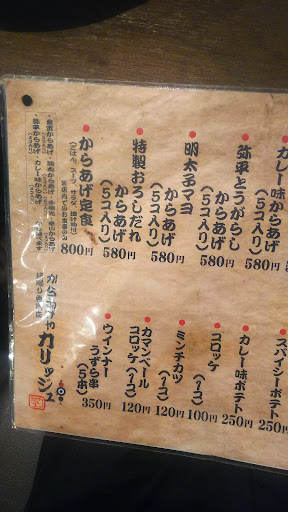 カレー味からあげ
（5コ入り）
弥平とうがらし
からあげ
（5コ入り）580円
明太子マヨ
からあげ
（5コ入り）580円
特製おろしだれ
からあげ
（5コ入り）580円
からあげ定食
（ごはん、スープ、サラダ、漬け物付）
800円
スパイシーポテト
250円
カレー味ポテト
250円
コロッケ
（1コ）100円
ミンチカツ
（1コ）120円
カマンベール
コロッケ（1コ）120円
ウインナー
うずら串
（5本）350円
カリッジュ